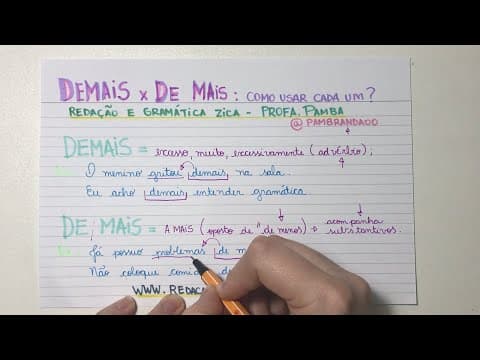 DEMAIS x DE MAIS: COMO USAR CADA UM?
REDAÇÃO E GRAMÁTICA ZICA - PROFA. PAMBA
@PAMBRANDAOO
DEMAIS = excesso, muito, excessivamente (advérbio);
O menino gritou demais na sala.
Eu acho demais entender gramática.
DE/MAIS = A MAIS (oposto de "de menos") → acompanha substantivos.
Já possuo problemas de
Não coloque
WWW.